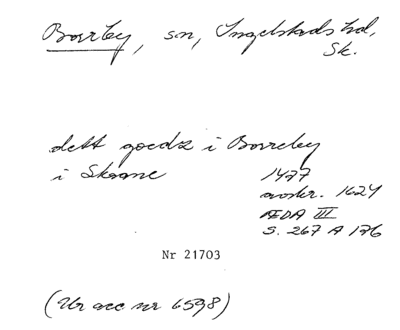 Borrby, sn, Ingelstads hd,
Sk.
dett goedz i Borreby
i Skaane
1477
avskr. 1624
ÆDA III
S. 267 A 176
Nr 21703
(Ur acc nr 6598)